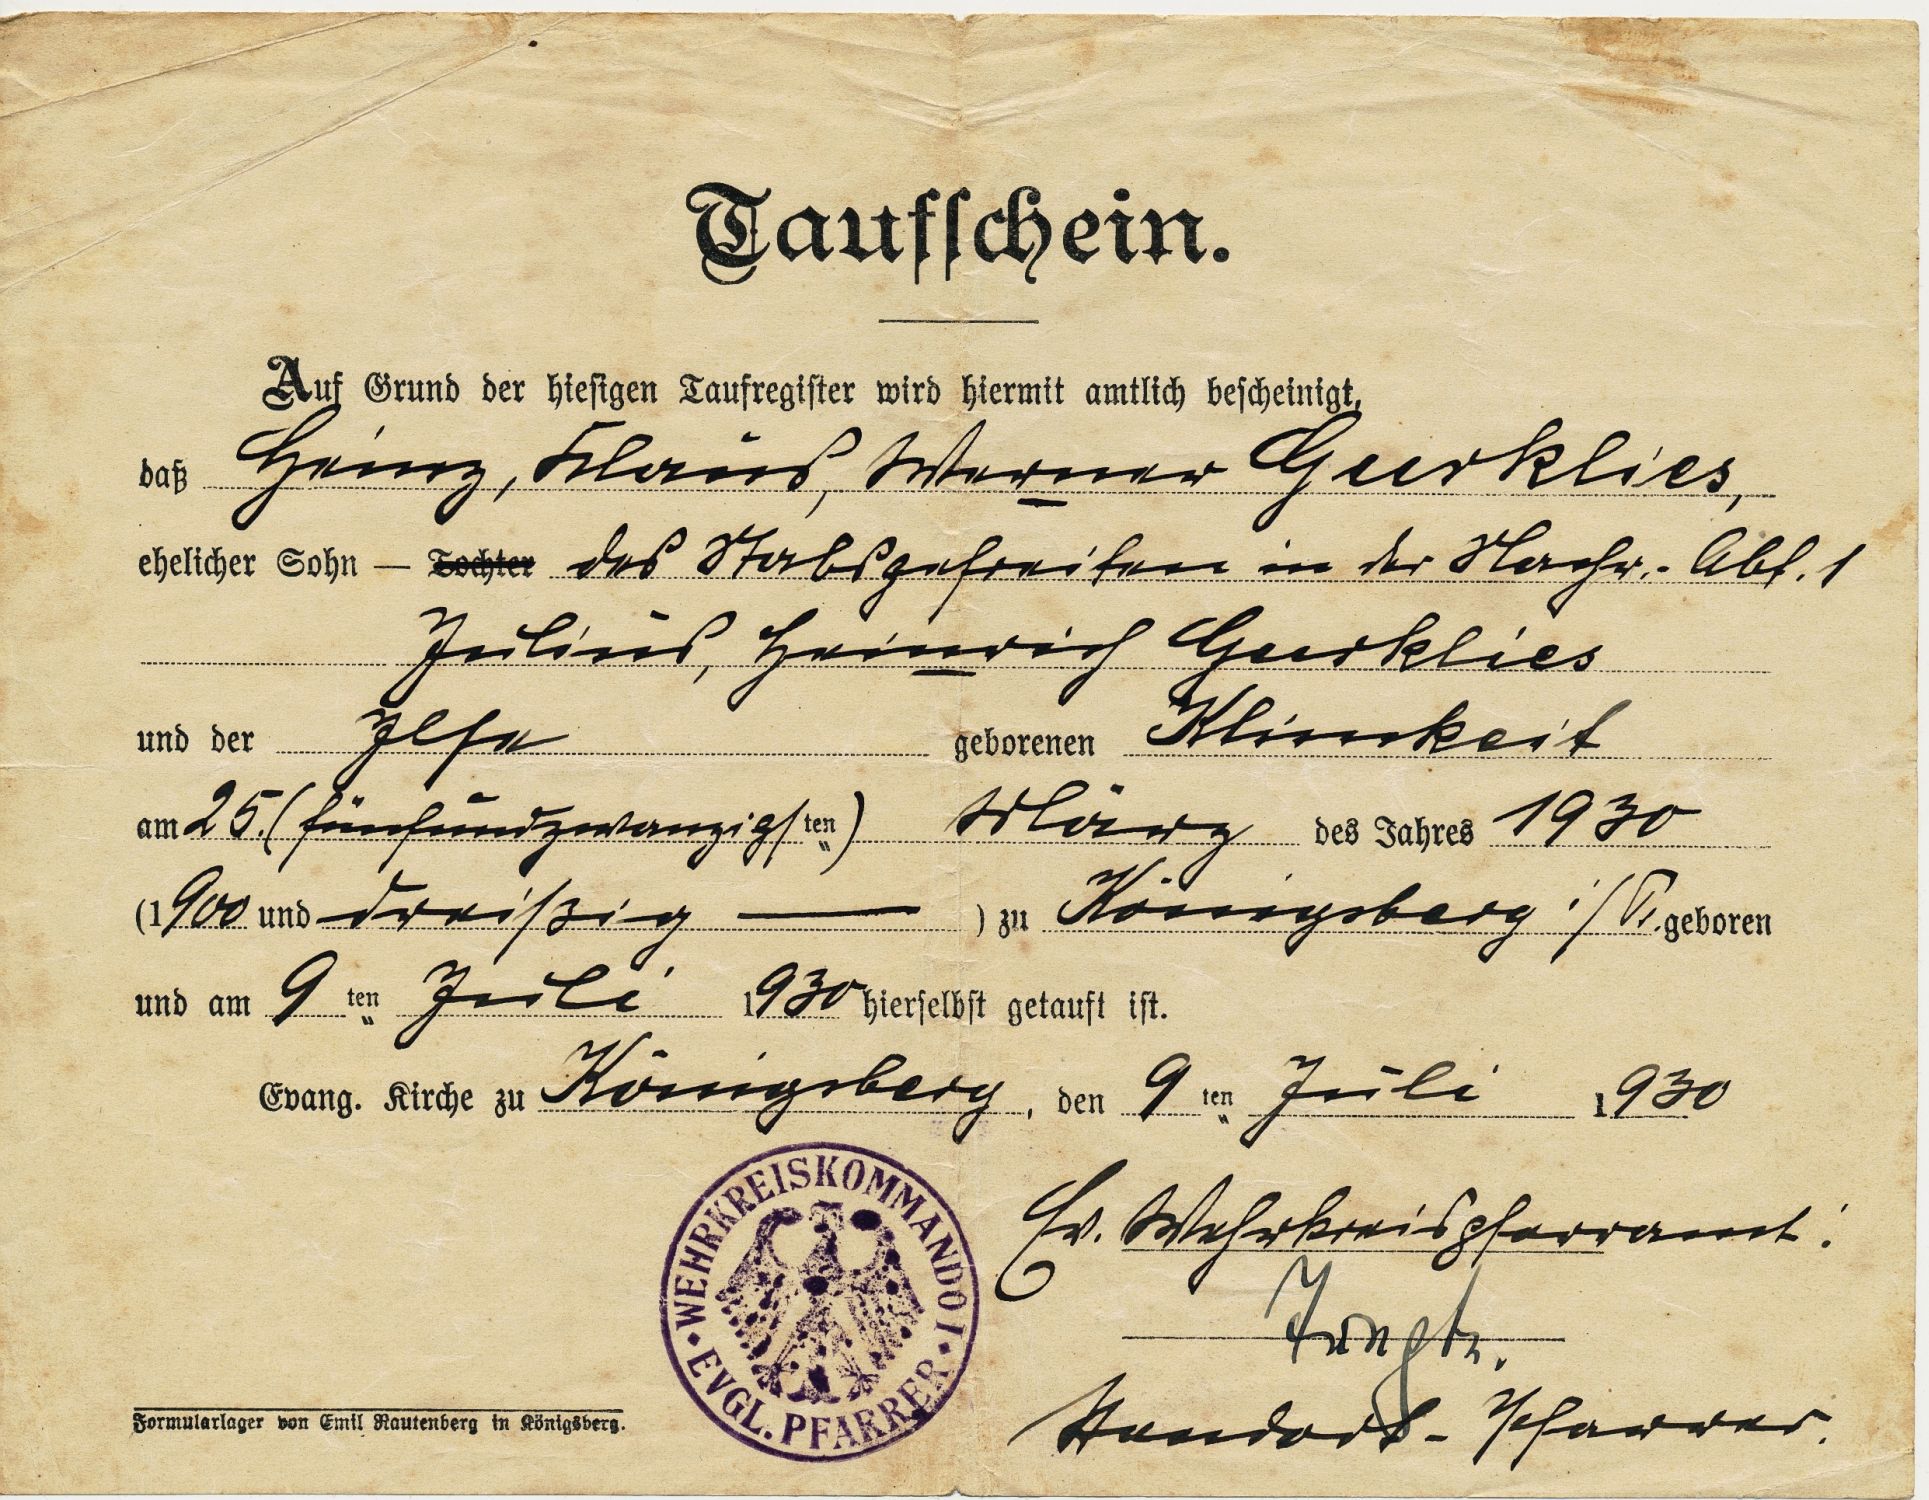 Taufschein.
Auf Grund der hiesigen Taufregister wird hiermit amtlich bescheinigt,
daß Heinz, Klaus, Werner Gurklies,
ehelicher Sohn — Tochter des Stabsgefreiten in der Nachr.-Abt. 1
Julius, Heinrich Gurklies
und der Ilse geborenen Klimkeit
am 25. (fünfundzwanzigsten) März des Jahres 1930
(1900 und dreißig —) zu Königsberg i/Pr. geboren
und am 9ten Juli 1930 hierselbst getauft ist.
Evang. Kirche zu Königsberg, den 9ten Juli 1930
WEHRKREISKOMMANDO I
EVGL. PFARRER
Ev. Wehrkreispfarramt:
Standort-Pfarrer.
Formularlager von Emil Rautenberg in Königsberg.